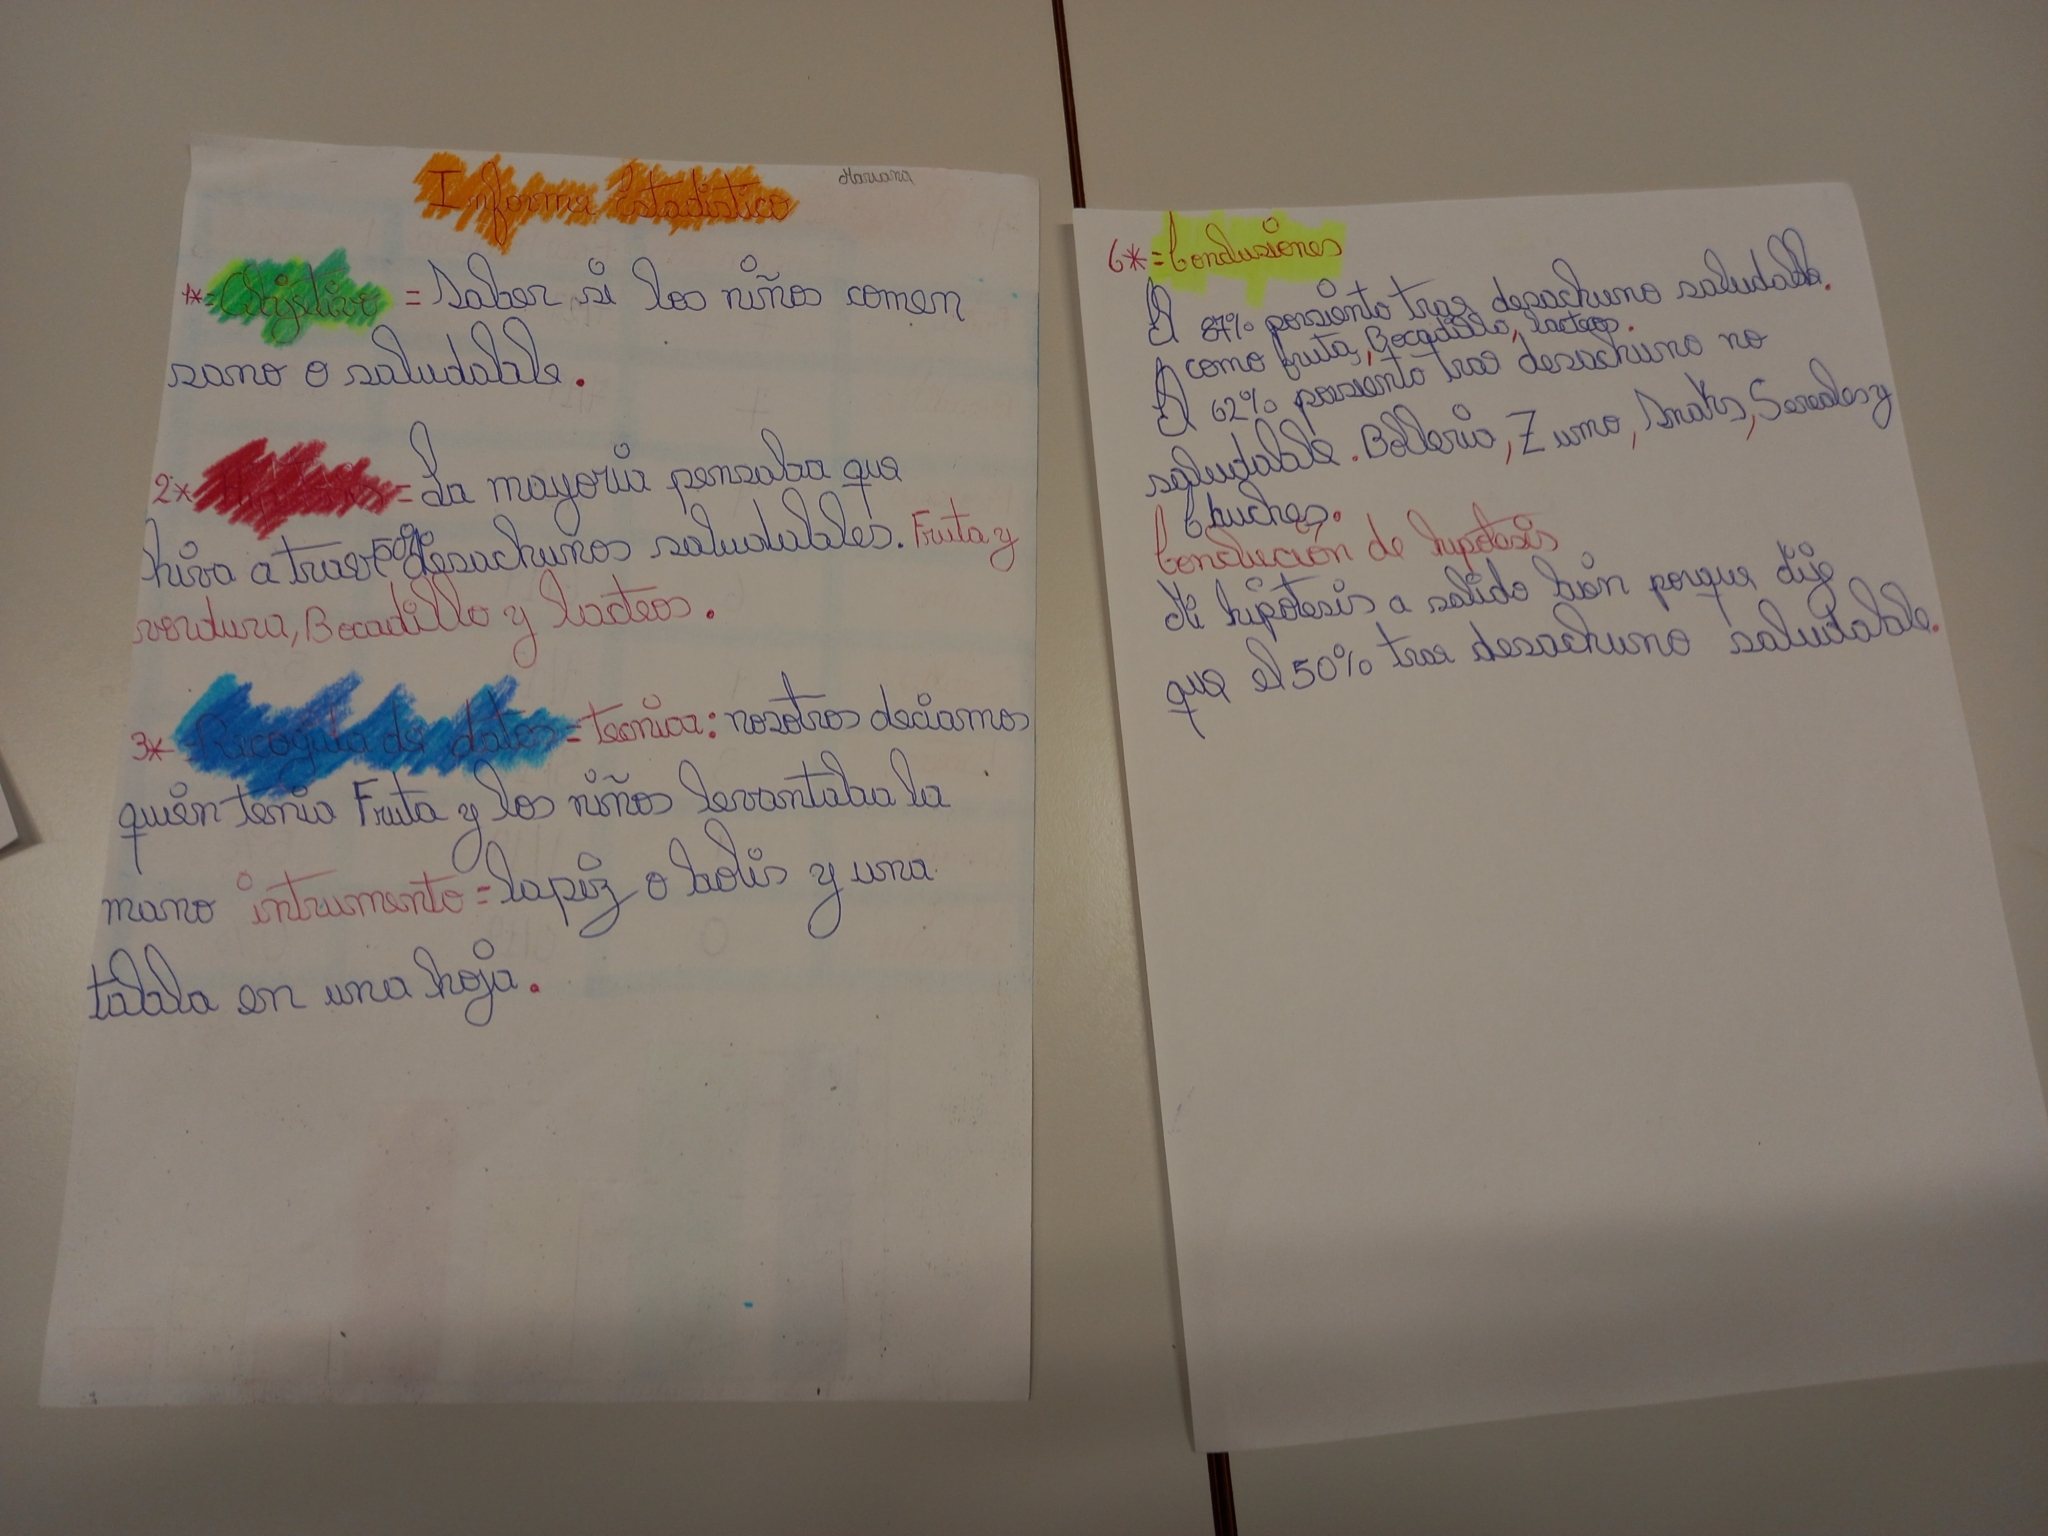 Informe Estadistico
Mariana
1*=Objetivo = Saber si los niños comen
sano o saludable.
2* = La mayoria pensaba que
hiva a traer 50% desachunos saludables. Fruta y
verdura, Bocadillo y lacteos.
3* Recogida de datos = tecnica: nosotros deciamos
quién tenia Fruta y los niños levantaba la
mano intrumento = lapiz o bolis y una
tabla en una hoja.
6*= Conclusiones
El 87% porsiento trae desachuno saludable.
como fruta, Bocadillo, lacteos.
El 62% porsiento trae desachuno no
saludable. Bolleria, Zumo, Snaks, Sereales y
Chuches.
Conclución de hipótesis
Mi hipótesis a salido bien porque dije
que el 50% trae desachuno saludable.